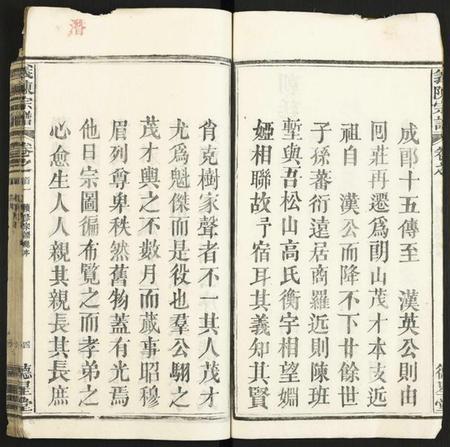 義陳宗譜 卷之
德星堂
成郎十五傳至 漢英公則由
囘莊再遷爲朗山茂才本支近
祖自 漢公而降不下廿餘世
子孫蕃衍遠居商羅近則陳班
塹與吾松山高氏衡宇相望姻
婭相聯故予宿耳其義知其賢
潛
肖克樹家聲者不一其人茂才
尤爲魁傑而是役也羣公駟之
茂才輿之不數月而蕆事昭穆
眉列尊卑秩然舊物蓋有光焉
他日宗圖徧布覽之而孝弟之
心愈生人人親其親長其長庶
義陳宗譜 卷之首一
四
德星堂